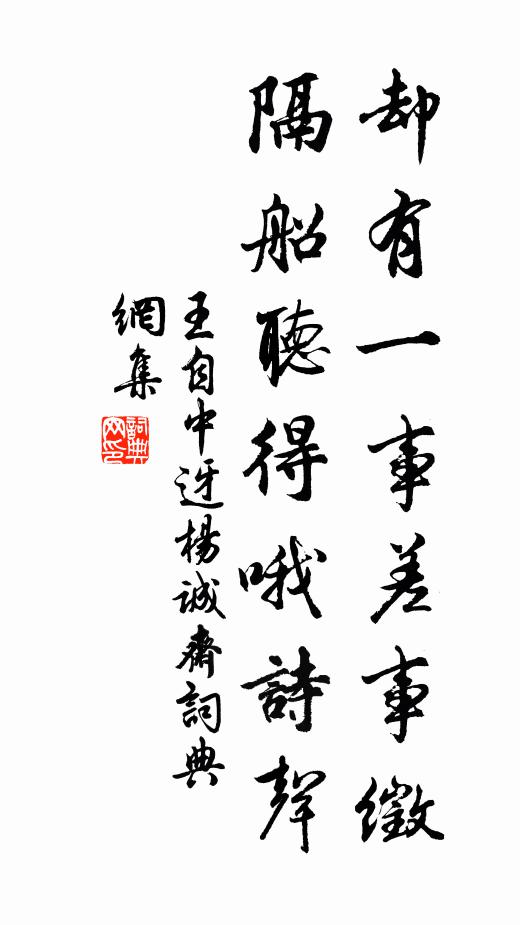 却有一事差事徵
隔船聽得哦詩聲
王自中迓楊誠齋詞典
網集
詞典
网印